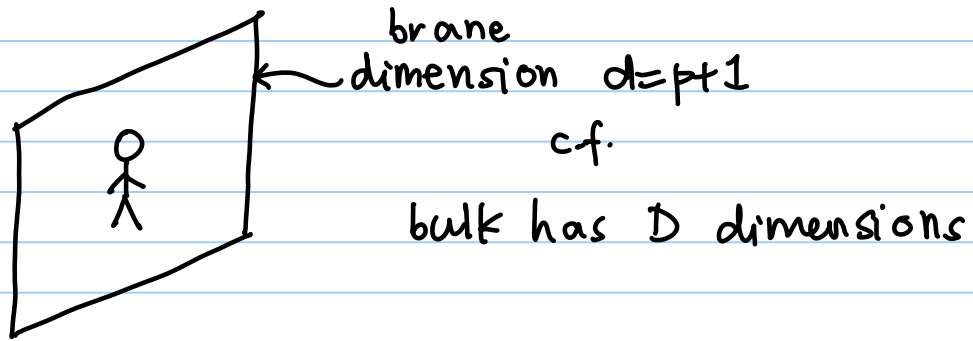 brane
dimension d=p+1
c.f.
bulk has D dimensions